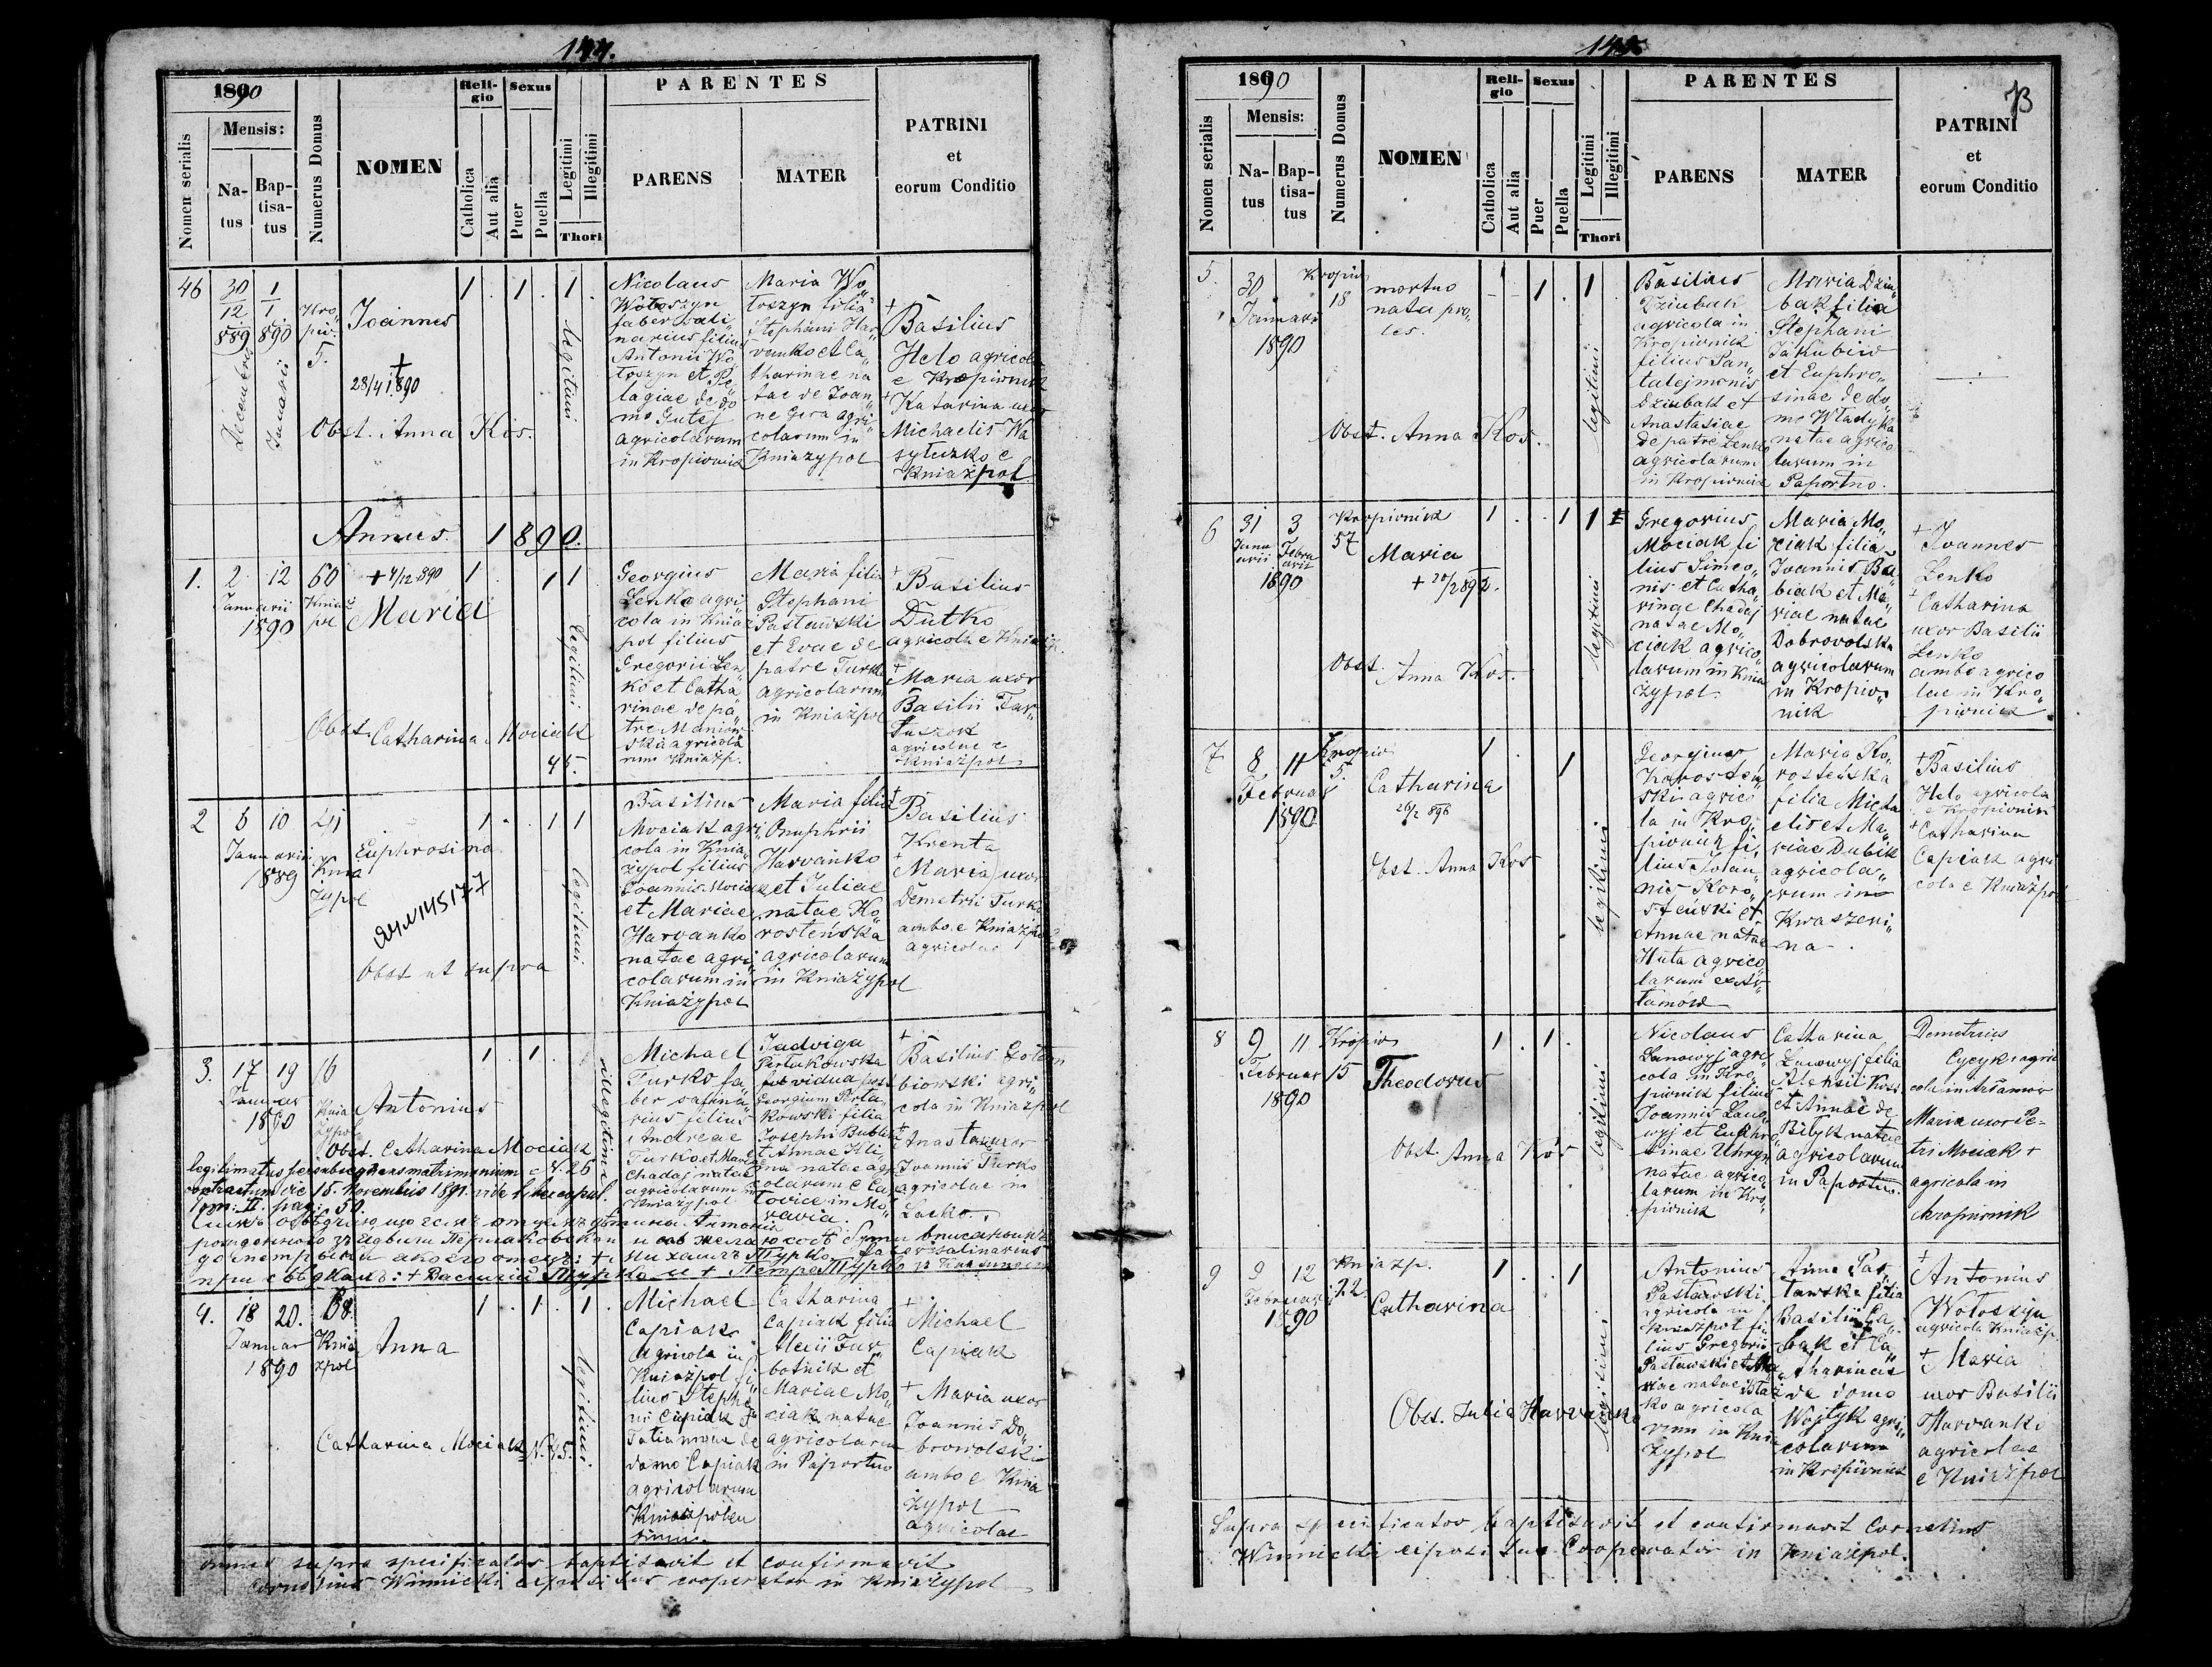 144.
1890
Mensis:
Nomen serialis
Natus
Baptisatus
Numerus Domus
NOMEN
Religio
Catholica
Aut alia
Sexus
Puer
Puella
Legitimi
Illegitimi
Thori
PARENTES
PARENS
MATER
PATRINI
et
eorum Conditio
46
30 1
12 1
889 890
Decembris
Januarii
Kro„
piv.
5.
Joannes
+
28/4 1890
Obst. Anna Kos.
1 . 1 . 1 .
legitimi
Nicolaus
Wołoszyn
faber sali„
narius filius
Antonii Wo„
łoszyn et Pe„
lagiae de do„
mo Gutej
agricolarum
in Kropivnik
Maria Wo„
łoszyn filia
Stephani Har„
vanko et Ca„
tharinae na„
tae de Joan„
ne Gera agri„
colarum in
Kniazypol
+
Basilius
Helo agricola
e Kropivnik
+ Katarina uxor
Michaelis Wa
syluzko e
Kniażpol.
Annus 1890.
1.
2 12
Januarii
1890
60
Kniaż
pol
+ 4/12 890
Maria
1 . 1 1
legitimi
Obst. Catharina Mociak
45.
Georgius
Lenko agri„
cola in Kniaż
pol filius
Gregorii Len„
ko et Catha„
rinae de pa„
tre Maniow„
ska agricola
rum Kniażp.
Maria filia
Stephani
Pasławski
et Evae de
patre Turko
agricolarum
in Kniażpol
+ Basilius
Dutko
agricola e Kniażp.
+
Maria uxor
Basilii
agricolae e
Kniażpol
2
6 10
Januarii
1889
41
Knia
żypol
Euphrosina
145177
Obst ut supra
1 . . 1 1
legitimi
Basilius
Mociak agri„
cola in Knia„
żypol filius
Joannis Mociak
et Mariae
Harvanko
natae agri„
colarum in
Kniażypol
Maria filia
Onuphrii
Harvanko
et Juliae
natae Ko„
rosteńska
agricolarum
in Kniażypol
+
Basilius
Krenta
+
Maria uxor
Demetrii Turko
ambo e Kniażpol
agricolae
3.
17 19
Januar
1890
16
Knia
żypol
Antonius
1 . 1 .
illegitimi
Obst. Catharina Mociak
N. 45
legitimatus per subsequens matrimonium
contractum die 15. Novembris 1891. vide Lib. copul.
Tom. II. pag. 50.
Michael
Turko fa„
ber salina„
rius filius
Andreae
Turko et Mariae
Chadaj natae
agricolarum in
Kniażypol
Jadviga
Pertakowska
vidua post
Georgium Perta„
kowski filia
Josephi
et Annae Kli„
ma natae agri„
colarum e Ca„
tovice in Mo„
ravia.
+
Basilius
agri„
cola in Kniażpol
+ uxor
Joannis Turko
agricolae in
Lacko.
Михаилъ Турко faber salinarius
при свѣдкахъ: + Василий Турко и + Петро Турко
4.
18 20.
Januar
1890
58.
Knia
żpol
Anna
1 . 1 . 1 .
legitimi
Catharina Mociak N. 45.
Michael
Capiak
agricola in
Kniażpol fi„
lius Stepha„
ni Capiak et
Tatianae de
domo Capiak
agricolarum
Kniażpolen
sium.
Catharina
Capiak filia
Alexii Fur„
botnik et
Mariae Mo„
ciak natae
agricolarum
in Paportno
+
Michael
Capiak
+ Maria uxor
Joannis Do„
browolski
ambo e Knia
żypol
agricolae
omnes supra specificatos baptisavit et confirmavit
Cornelius Winnicki expositus cooperator in Kniażypol
145.
73
1890
Mensis:
Nomen serialis
Natus
Baptisatus
Numerus Domus
NOMEN
Religio
Catholica
Aut alia
Sexus
Puer
Puella
Legitimi
Illegitimi
Thori
PARENTES
PARENS
MATER
PATRINI
et
eorum Conditio
5.
30
Januarii
1890
Kropiv
18
mortuo
nata pro„
les.
1 . 1 . 1
legitimi
Obst. Anna Kos.
Basilius
Dziubak
agricola in
Kropivnik
filius Pan„
talejmonis
Dziubak et
Anastasiae
de patre Lenko
agricolarum
in Kropivnik
Maria Dziu„
bak filia
Stephani
Jakubiw
et Euphro„
sinae de do„
mo Władyka
natae agrico„
larum in
Paportno.
6
31 3
Janu
arii
Febru
arii
1890
Kropivnik
57
Maria
+ 20/2 892.
1 . . 1 1
legitimi
Obst. Anna Kos.
Gregorius
Mociak fi
lius Simeo„
nis et Catha„
rinae Chadaj
natae Mo„
ciak agrico„
larum in Knia
żypol
Maria Mo„
ciak filia
Joannis Ba„
biak et Ma„
riae natae
Dobrovolska
agricolarum
in Kropiv„
nik
+ Joannes
Lenko
+
Catharina
uxor Basilii
Lenko
ambo agrico
lae in Kro„
pivnik.
7
8 11
Februar
1890
Kropiv
5.
Catharina
26/2 896
Obst. Anna Kos
1 . 1
legitimi
Georgius
Korosteń„
ski agrico
la in Kro„
pivnik fi„
lius Joan„
nis Koro„
steński et
Annae natae
Huta agrico„
larum ex Ar„
tamów
Maria Ko„
rosteńska
filia Micha
elis et Ma„
riae Dubik
agricola„
rum in
Kwaszeni„
na.
+ Basilius
Helo agricola
e Kropivnik
+ Catharina
Capiak agri
cola e Kniażpol
8
9 11
Februar
1890
Kropiv
15
Theodorus
Obst. Anna Kos
1 . 1 .
legitimi
Nicolaus
Lanowyj agri„
cola in Kro„
pivnik filius
Joannis Lano„
wyj et Euphro„
sinae Uhryn
natae agrico„
larum in Kro„
pivnik
Catharina
Lanowyj filia
Alexii Kosi
et Annae de
Bilyk natae
agricolarum
in Paportno.
Demetrius
Cycyk agri
cola in Artamow
Maria uxor Pe-
tri Mociak +
agricola in
Kropivnik
9
9 12
Februarii
1890
Kniażp.
22
Catharina
1 . . 1
legitimi
Obst. Julia Harvanko
Antonius
Pasławski
agricola in
Kniażpol fi„
lius Gregorii
Pasławski et Ma
riae natae
ko agricola
rum in Knia
żypol
Anna Pas„
ławska filia
Basilii
et Ca„
tharinae
de domo
Wojtyk agri„
colarum
in Kropivnik
+
Antonius
Wołoszyn
agricola Kniażp.
+ Maria
uxor Basilii
Harvanko
agricolae
e Kniażpol
Supra specificatos baptisavit et confirmavit Cornelius
Winnicki expositus Cooperator in Kniażpol.